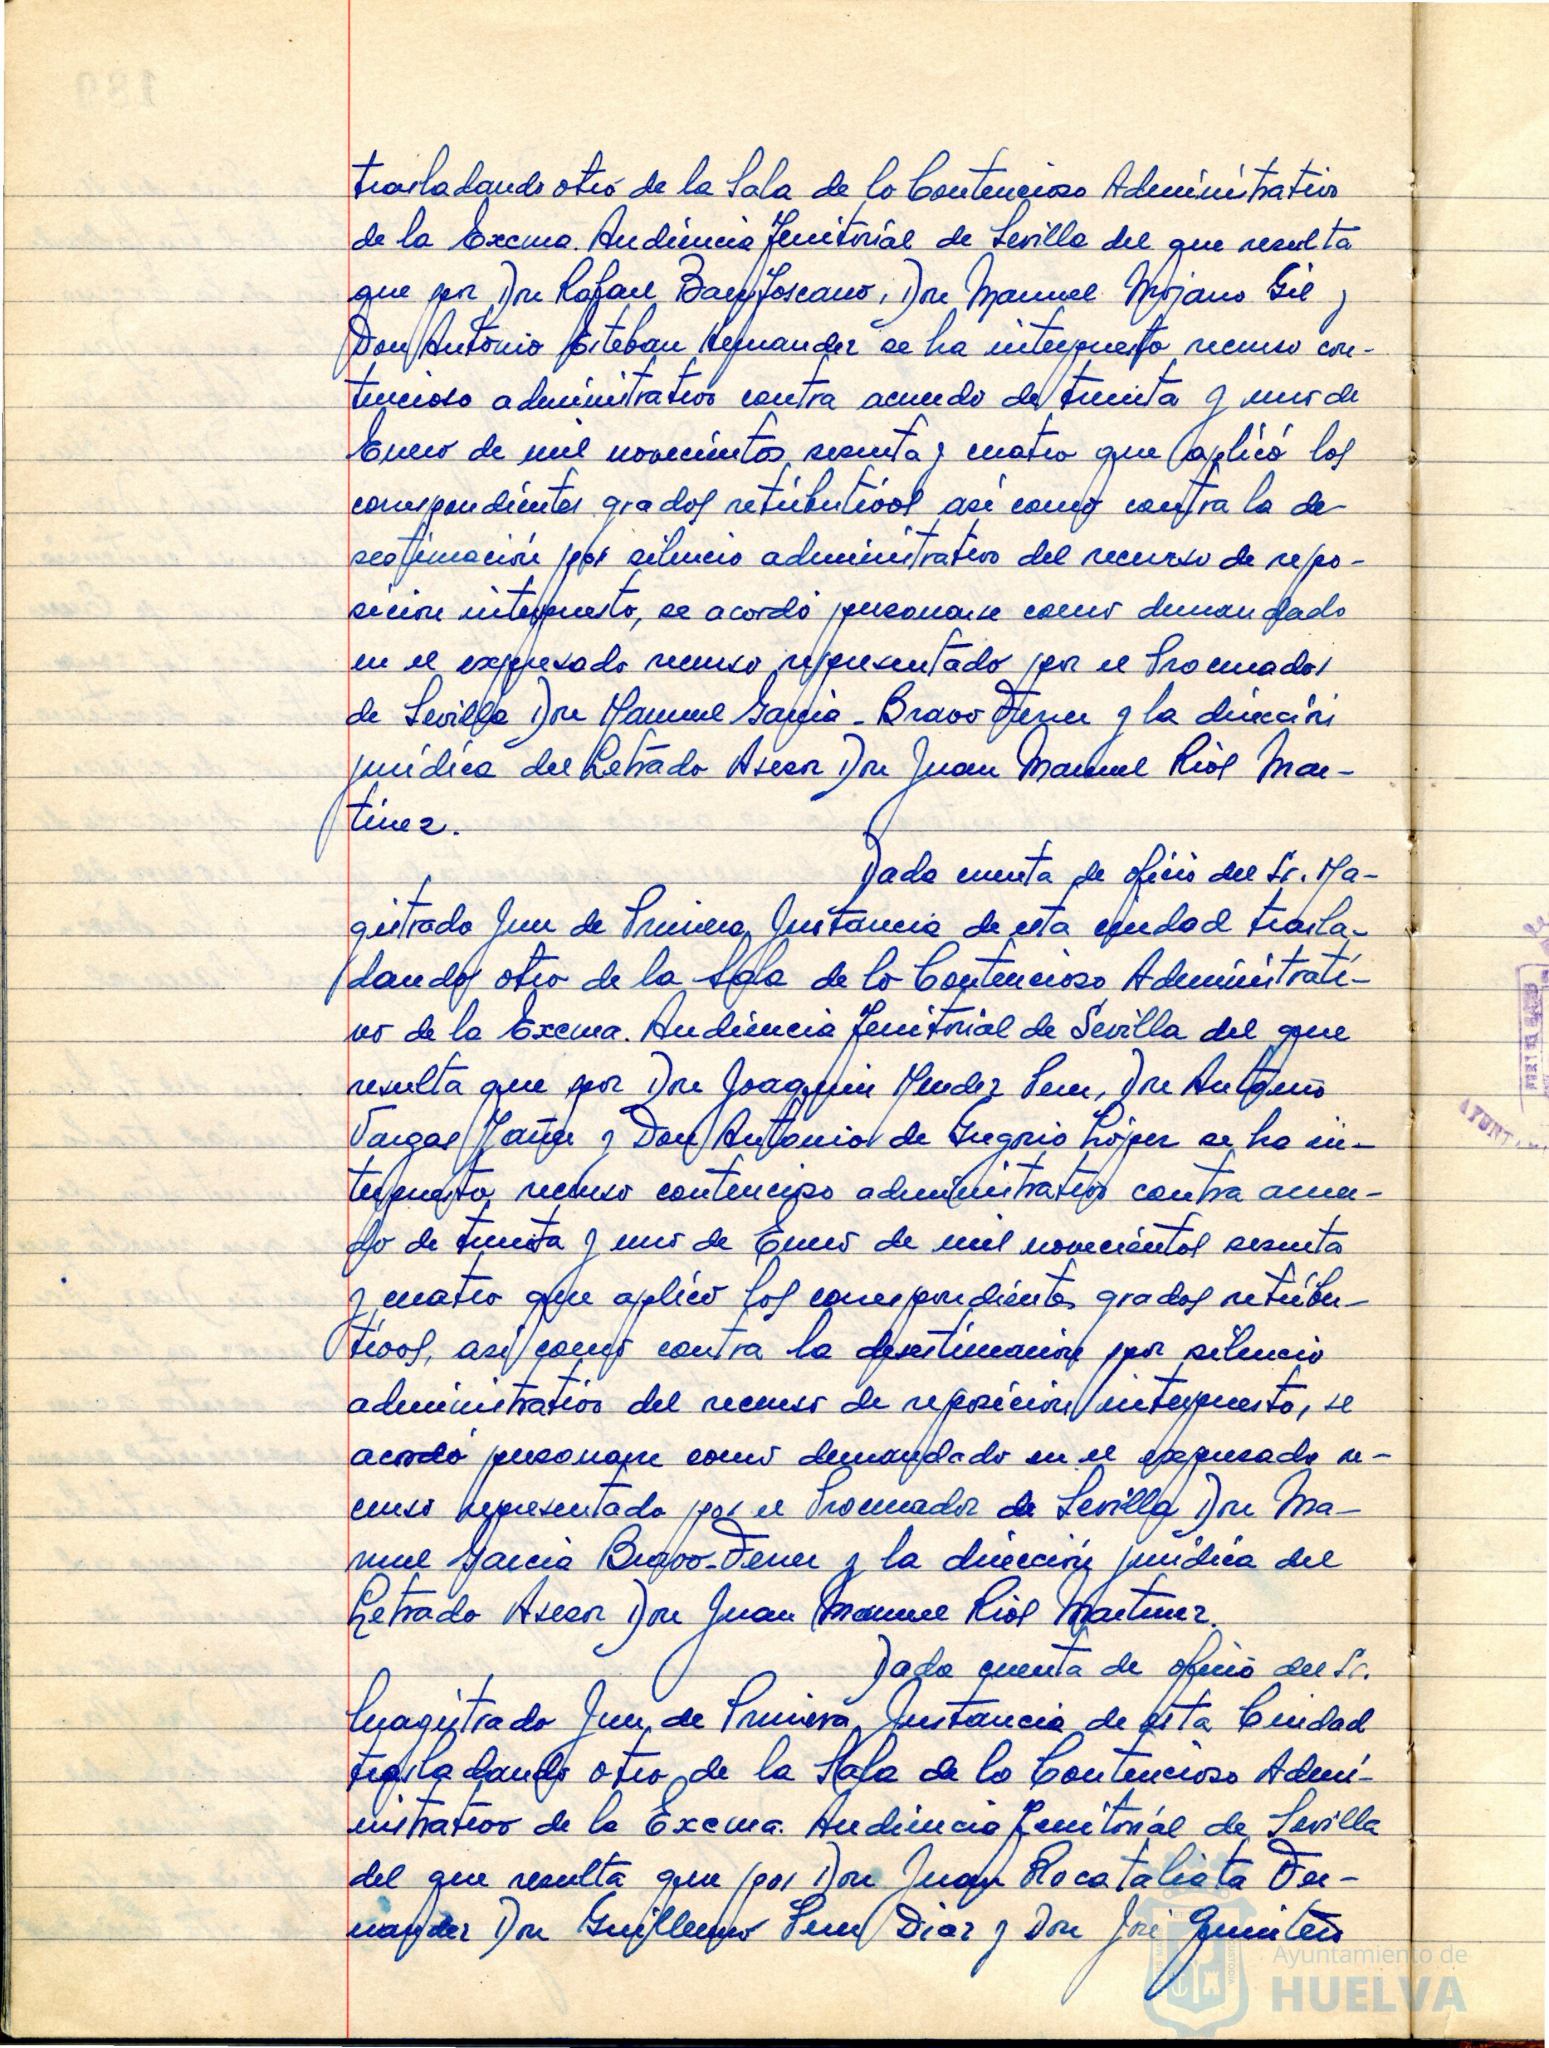 trasladando otro de la Sala de lo Contencioso Administrativo
de la Excma. Audiencia Territorial de Sevilla del que resulta
que por Don Rafael Baez Toscano, Don Manuel Mojano Gil y
Don Antonio Esteban Hernandez se ha interpuesto recurso con-
tencioso administrativo contra acuerdo de treinta y uno de
Enero de mil novecientos sesenta y cuatro que aplicó los
correspondientes grados retributivos así como contra la de-
sestimación por silencio administrativo del recurso de repo-
sición interpuesto, se acordó personarse como demandado
en el expresado recurso representado por el Procurador
de Sevilla Don Manuel Garcia-Bravo Ferrer y la dirección
jurídica del Letrado Asesor Don Juan Manuel Riol Mar-
tinez.
Dada cuenta de oficio del Sr. Ma-
gistrado Juez de Primera Instancia de esta ciudad trasla-
dando otro de la Sala de lo Contencioso Administrati-
vo de la Excma. Audiencia Territorial de Sevilla del que
resulta que por Don Joaquin Mendez Perez, Don Antonio
Vargas Yañez y Don Antonio de Gregorio López se ha in-
terpuesto recurso contencioso administrativo contra acuer-
do de treinta y uno de Enero de mil novecientos sesenta
y cuatro que aplicó los correspondientes grados retribu-
tivos, así como contra la desestimación por silencio
administrativo del recurso de reposición interpuesto, se
acordó personarse como demandado en el expresado re-
curso representado por el Procurador de Sevilla Don Ma-
nuel Garcia Bravo-Ferrer y la dirección jurídica del
Letrado Asesor Don Juan Manuel Riol Martinez.
Dada cuenta de oficio del Sr.
Magistrado Juez de Primera Instancia de esta Ciudad
trasladando otro de la Sala de lo Contencioso Admi-
nistrativo de la Excma. Audiencia Territorial de Sevilla
del que resulta que por Don Juan Rocataliata Fer-
nandez Don Guillermo Perez Diaz y Don José Quintero
Ayuntamiento de
HUELVA